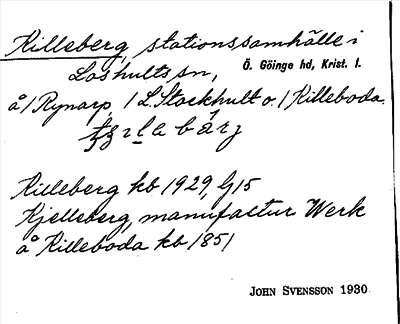 Killeberg, stationssamhälle i
Loshults sn, Ö. Göinge hd, Krist. l.
å 1 Rynarp, 1 L. Stockhult o. 1 Killeboda.
Killeberg kb 1929, G15
Kjelleberg, manufactur Werk
å Killeboda kb 1851
JOHN SVENSSON 1930.